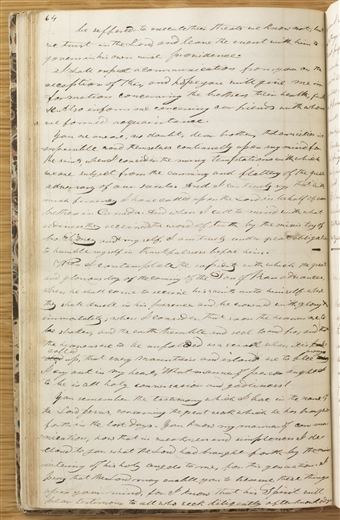 64
be suffered to execute their threats we know not, but
we trust in the Lord and leave the event with him to
govern in his own wise providence.
I shall expect a communication from you on the
reception of this and hope you will give me in
formation concerning the brothers their health faith
&c Also inform me concerning our friends with whom
we formed acquaintance.
You are aware, no doubt, dear brother, that anxieties
inexpressible crowd themselves continually upon my mind for
the saints, when I consider the many temptations with which
we are subject from the cunning and flattery of the great
adversary of our souls. And I can truly say that with
much fervency I have called upon the Lord in behalf of our
brethren in Canada. And when I call to mind with what
readiness they received the word of truth by the ministry of
bro Sidney and myself, I am truly under great obligations
to humble myself in thankfulness before him.
When I contemplate the rapidity with which the great
and glorious day of the coming of the Son of Man advances
when he shall come to receive his saints unto himself where
they shall dwell in his presence and be crowned with glory &
immortality, when I consider that soon the heavens are to
be shaken, and the earth tremble and reel to and fro, and that
the heavens are to be unfolded as a scroll when it is
rolled up, that every mountain and island are to flee away
I cry out in my heart, What manner of person ought I
to be in all holy conversation and godliness!
You remember the testimony which I bore in the name of
the Lord Jesus concerning the great work which he has brought
forth in the last days. You know my manner of com
munication, how that in weakness and simpleness I de
clared to you what the Lord had brought forth by the min
istering of his holy angels to me, for this generation. I
pray that the Lord may enable you to treasure these things
up in your mind, for I know that his Spirit will
bear testimony to all who seek diligently after knowledge